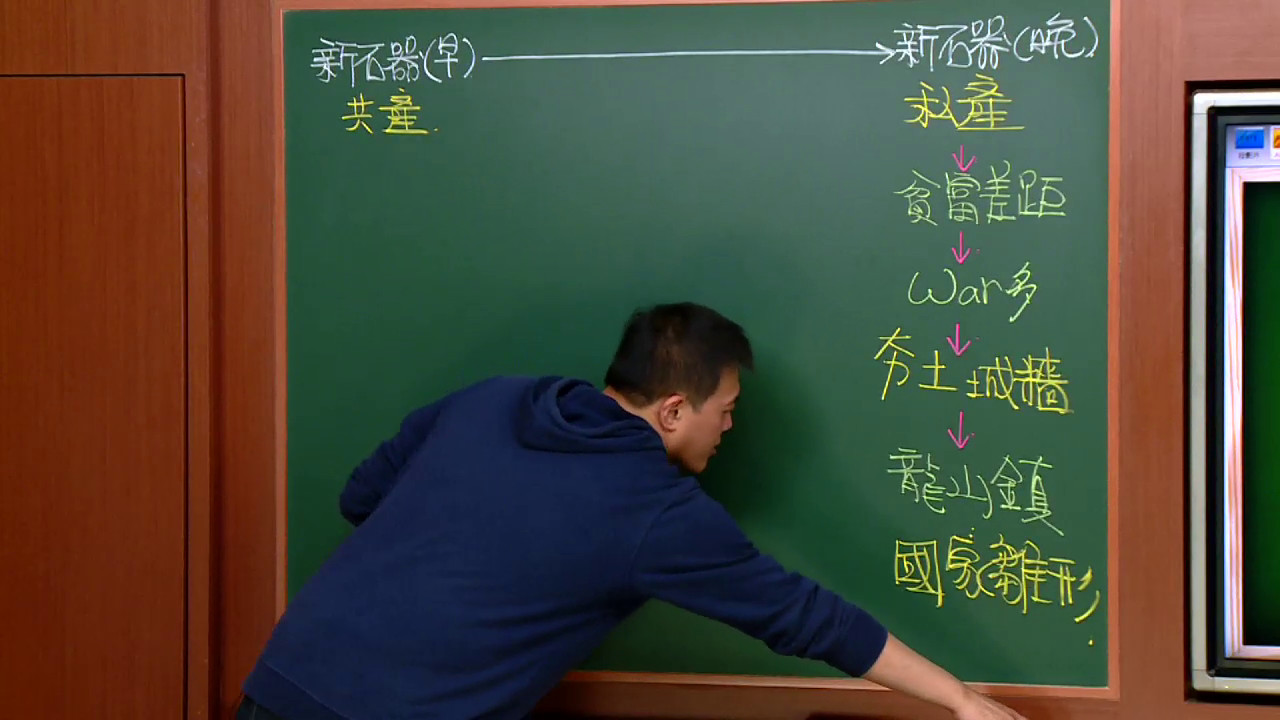 新石器(早) → 新石器(晚)
共產
私產
↓
貧富差距
↓
War多
↓
夯土城牆
↓
龍山鎮
國家雛形